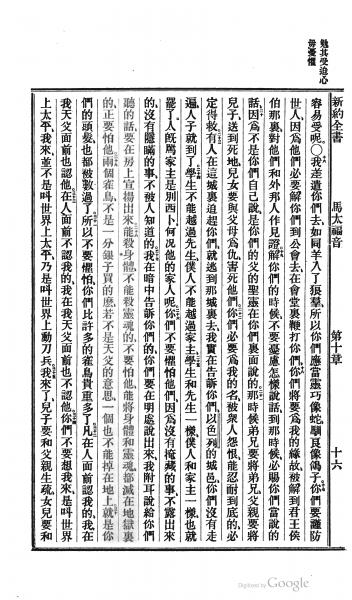 勉其受迫心
毋憂懼
新約全書 馬太福音 第十章 十六
容易受呢〇我差遣你們去如同羊入了狼羣所以你們應當靈巧像蛇馴良像鴿子你們要謹防
世人因為他們必要解你們到公會去在會堂裏鞭打你們你們將要為我的緣故被解到君王侯
伯那裏對他們和外邦人作見證解你們的時候不要憂慮怎樣說話到那時候必賜你們當說的
話因為不是你們自己說是你們的父的聖靈在你們裏面說的那時候弟兄要將弟兄父親要將
兒子送到死地兒女要與父母為仇害死他們你們必要為我的名被衆人怨恨能忍耐到底的必
定得救有人在這城裏迫逼你們就逃到那城裏去我實在告訴你們以色列的城邑你們沒有走
遍人子就到了學生不能越過先生僕人不能越過家主學生和先生一樣僕人和家主一樣也就
罷了人旣罵家主是別西卜何況他的家人呢你們不要懼怕他們因為沒有掩藏的事不露出來
的沒有隱瞞的事不被人知道的我在暗中告訴你們的你們要在明處說出來我附耳說給你們
聽的話要在房上宣揚出來能殺身體不能殺靈魂的不要怕他能將身體和靈魂都滅在地獄裏
的正要怕他兩個雀鳥不是一分銀子買的麽若不是天父的意思一個也不能掉在地上就是你
們的頭髮也都被數過了所以不要懼怕你們比許多的雀鳥貴重多了凡在人面前認我的我在
我天父面前也認他在人面前不認我的我在我天父面前也不認他你們不要想我來是叫世界
上太平我來並不是叫世界上太平乃是叫世界上動刀兵我來了兒子要和父親生疏女兒要和
Digitized by Google